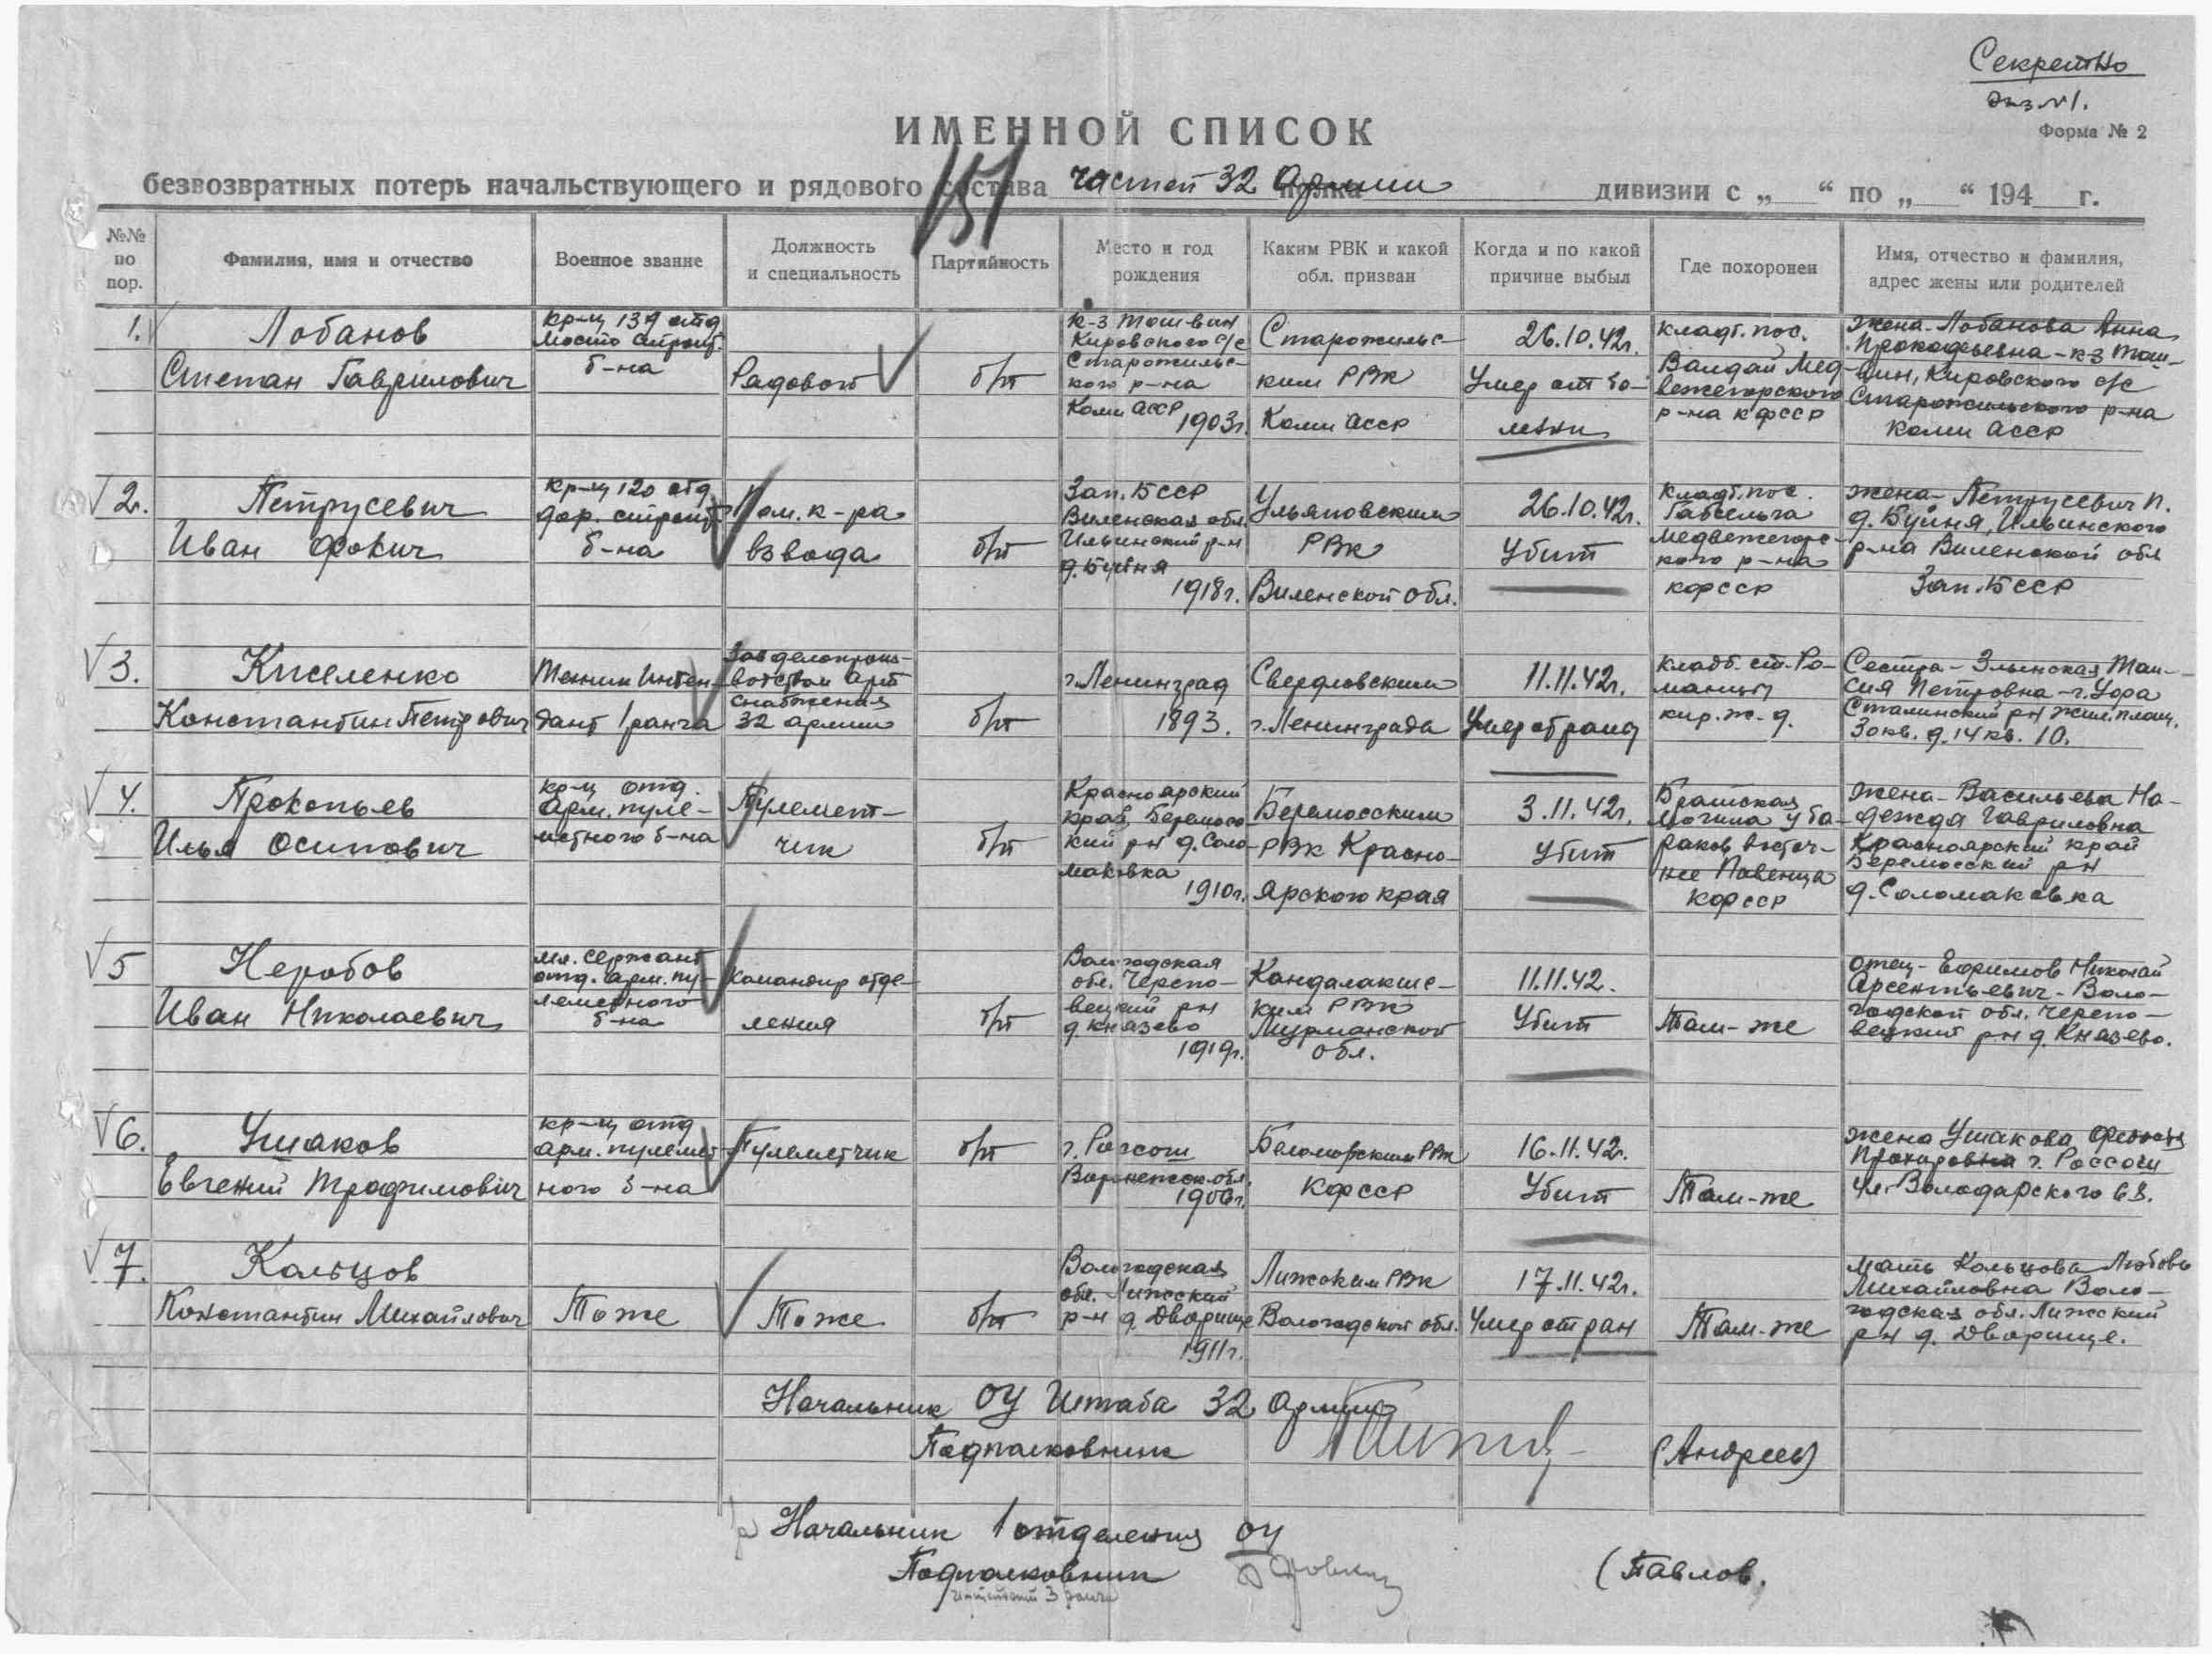 Секретно
экз №1.
Форма № 2
ИМЕННОЙ СПИСОК
безвозвратных потерь начальствующего и рядового состава частей 32 Армии полка дивизии с „ “ по „ “ 194 г.
151
№№ по пор.
Фамилия, имя и отчество
Военное звание
Должность и специальность
Партийность
Место и год рождения
Каким РВК и какой обл. призван
Когда и по какой причине выбыл
Где похоронен
Имя, отчество и фамилия, адрес жены или родителей
1.
Лобанов
Степан Гаврилович
кр-ц 139 отд
мосто строит.
б-на
Рядовой
б/п
к-з Ташвин
Кировского с/с
Старожильс-
кого р-на
Коми АССР
1903г.
Старожильс-
ким РВК
Коми АССР
26.10.42г.
Умер от бо-
лезни
кладб. пос.
Валдай Мед-
вежегорского
р-на КФССР
жена-Лобанова Анна
Прокофьевна-кз Таш-
вин, Кировского с/с
Старожильского р-на
Коми АССР
2.
Петрусевич
Иван Фокич
кр-ц 120 отд
дор. строит
б-на
Пом. к-ра
взвода
б/п
Зап. БССР
Виленская обл.
Ильинский р-н
д. Буйня
1918г.
Ульяновским
РВК
Виленской обл.
26.10.42г.
Убит
кладб. пос.
Габсельга
Медвежегорс-
кого р-на
КФССР
жена-Петрусевич П.
д. Буйня, Ильинского
р-на Виленской обл
Зап. БССР
3.
Киселенко
Константин Петрович
Техник Интен-
дант 1 ранга
Зав делопроиз-
водством арт
снабжения
32 армии
б/п
г. Ленинград
1893.
Свердловским
г. Ленинграда
11.11.42г.
Умер от раны
кладб. ст. Ро-
манцы
кир. ж. д.
Сестра-Злынская Таи-
сия Петровна-г. Уфа
Сталинский рн жил. площ.
30кв. д. 14 кв. 10.
4.
Прокопьев
Илья Осипович
кр-ц отд.
арм. пуле-
метного б-на
Пулемет-
чик
б/п
Красноярский
край Беремосс
кий рн д. Соло-
маковка
1910г.
Беремосским
РВК Красно-
ярского края
3.11.42г.
Убит
Братская
могила у ба-
раков восточ-
нее Повенца
КФССР
жена-Васильева На-
дежда Гавриловна
Красноярский край
Беремосский рн
д. Соломаковка
5
Неробов
Иван Николаевич
мл. сержант
отд. арм. пу-
леметного
б-на
Командир отде-
ления
б/п
Вологодская
обл. Черепо-
вецкий рн
д. Князево
1919г.
Кандалакшс-
ким РВК
Мурманской
обл.
11.11.42.
Убит
Там-же
отец-Ефимов Николай
Арсентьевич-Воло-
годской обл. Черепо-
вецкий рн д. Князево.
6.
Ушаков
Евгений Трофимович
кр-ц отд
арм. пулемет-
ного б-на
Пулеметчик
б/п
г. Россош
Воронежск. обл.
1906г.
Беломорским РВК
КФССР
16.11.42г.
Убит
Там-же
жена Ушакова
Прохоровна г. Россош
ул. Володарского 68.
7.
Кальцов
Константин Михайлович
Тоже
Тоже
б/п
Вологодская
обл. Лижский
р-н д. Дворище
1911г.
Лижским РВК
Вологодской обл.
17.11.42г.
Умер от ран
Там-же
мать Кольцова Любовь
Михайловна Воло-
годская обл. Лижский
рн д. Дворище.
Начальник ОУ Штаба 32 Армии
Подполковник
(Андреев)
Начальник 1 отделения ОУ
Подполковник
(Павлов.